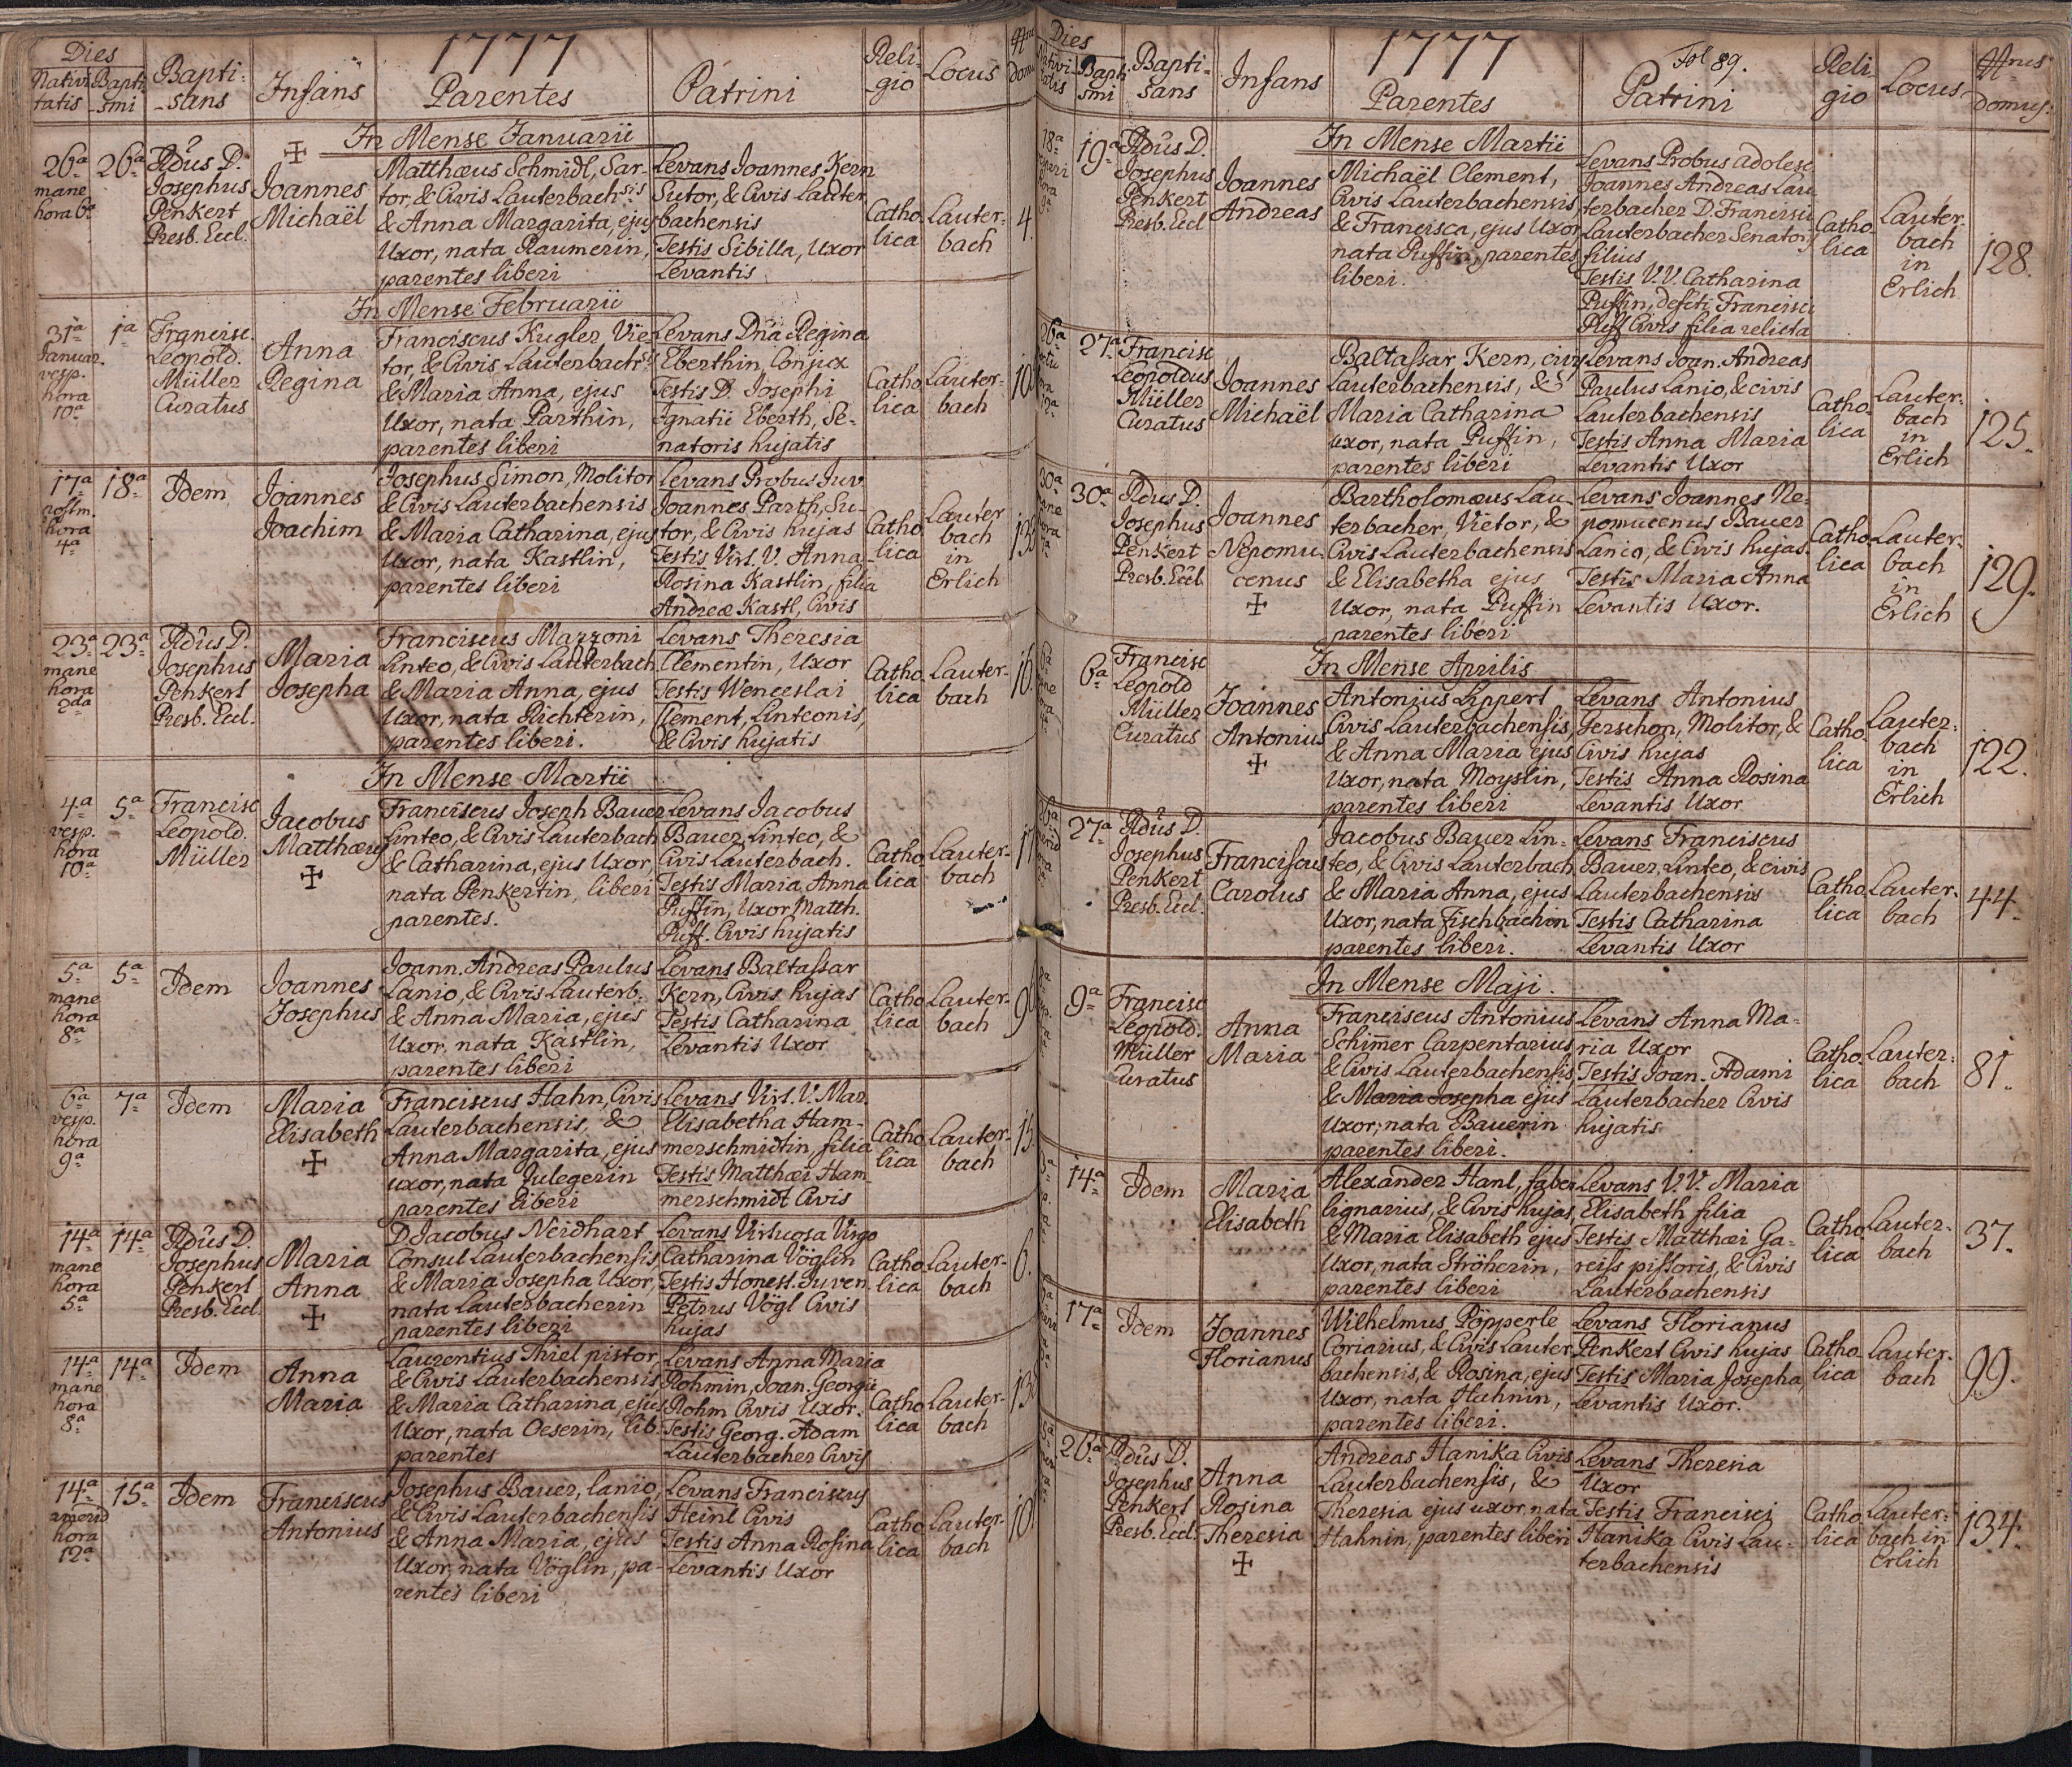 Dies
Nativi-
tatis
Bapti
-smi
Bapti-
-sans
Infans
1777
Parentes
Patrini
Reli-
-gio
Locus
In Mense Januarii
26ª
mane
hora 6ª
26ª
Adūs D.
Josephus
Penkert
Presb. Eccl.
Joannes
Michaël
Matthæus Schmidl, Sar-
tor, & Civis Lauterbachsis
& Anna Margarita, ejus
Uxor, nata Raumerin,
parentes liberi
Levans Joannes Kern
Sutor, & Civis Lauter
bachensis
Testis Sibilla, Uxor
Levantis
Catho
lica
Lauter-
bach
4.
In Mense Februarii
31ª
Januar.
vesp.
hora
10ª
1ª
Francisc.
Leopold.
Müller
Curatus
Anna
Regina
Franciscus Kugler, Vie-
tor, & Civis Lauterbachsis
& Maria Anna, ejus
Uxor, nata Parthin,
parentes liberi
Levans Dña Regina
Eberthin, Conjux
Testis D. Josephi
Ignatii Eberth, Se-
natoris hujatis
Catho
lica
Lauter-
bach
17ª
postm.
hora
4ª
18ª
Idem
Joannes
Joachim
Josephus Simon, Molitor
& Civis Lauterbachensis
& Maria Catharina, ejus
Uxor, nata Kastlin,
parentes liberi
Levans Probus Juv.
Joannes Parth, Su-
tor, & Civis hujas
Testis Virt. V. Anna
Rosina Kastlin, filia
Andreæ Kastl, Civis
Catho
lica
Lauter
bach
in
Erlich
23ª
mane
hora
2da
23ª
Adūs D.
Josephus
Penkert
Presb. Eccl.
Maria
Josepha
Franciscus Mazzoni
Linteo, & Civis Lauterbach
& Maria Anna, ejus
Uxor, nata Richterin,
parentes liberi.
Levans Theresia
Clementin, Uxor
Testis Wenceslai
Clement, Linteonis,
& Civis hujatis
Catho
lica
Lauter-
bach
16.
In Mense Martii
4ª
vesp.
hora
10ª
5ª
Francisc
Leopold.
Müller
Jacobus
Matthæus
Franciscus Joseph Bauer
Linteo, & Civis Lauterbach
& Catharina, ejus Uxor,
nata Penkertin, liberi
parentes.
Levans Jacobus
Bauer, Linteo, &
Civis Lauterbach.
Testis Maria Anna
Puffin, Uxor Matth.
Puff. Civis hujatis
Catho
lica
Lauter-
bach
5ª
mane
hora
8ª
5ª
Idem
Joannes
Josephus
Joann. Andreas Paulus
Lanio, & Civis Lauterb.
& Anna Maria, ejus
Uxor, nata Kastlin,
parentes liberi
Levans Baltassar
Kern, Civis hujas
Testis Catharina
Levantis Uxor
Catho
lica
Lauter-
bach
6ª
vesp.
hora
9ª
7ª
Idem
Maria
Elisabeth
Franciscus Hahn, Civis
Lauterbachensis, &
Anna Margarita, ejus
uxor, nata Julegerin
parentes liberi
Levans Virt. V. Mar.
Elisabetha Ham-
merschmidtin, filia
Testis Matthæi Ham
merschmidt Civis
Catho
lica
Lauter-
bach
15.
14ª
mane
hora
5ª
14ª
Adūs D.
Josephus
Penkert
Presb. Eccl
Maria
Anna
D. Jacobus Neidhart
Consul Lauterbachensis
& Maria Josepha Uxor,
nata Lauterbacherin
parentes liberi
Levans Virtuosa Virgo
Catharina Vöglin
Testis Honest. Juven.
Petrus Vögl Civis
hujas
Catho
lica
Lauter-
bach
6.
14ª
mane
hora
8ª
14ª
Idem
Anna
Maria
Laurentius Thiel pistor,
& Civis Lauterbachensis
& Maria Catharina, ejus
Uxor, nata Oeserin, lib.
parentes
Levans Anna Maria
Rohmin, Joan. Georgii
Rohm Civis Uxor.
Testis Georg. Adam
Lauterbacher Civis
Catho
lica
Lauter-
bach
14ª
hora
12ª
15ª
Idem
Franciscus
Antonius
Josephus Bauer, lanio,
& Civis Lauterbachensis
& Anna Maria, ejus
Uxor, nata Vöglin, pa-
rentes liberi
Levans Franciscus
Heinl Civis
Testis Anna Rosina
Levantis Uxor
Catho
lica
Lauter-
bach
Dies
Bapti
smi
Bapti-
sans
Infans
1777
Parentes
Fol 89.
Patrini
Reli
gio
Locus
Nrus
domus.
In Mense Martii
18ª
19ª
Adūs D.
Josephus
Penkert
Presb. Eccl
Joannes
Andreas
Michaël Clement,
Civis Lauterbachensis
& Francisca, ejus Uxor
nata Puffin, parentes
liberi.
Levans Probus adolesc
Joannes Andreas Lau
terbacher D. Francisci
Lauterbacher Senatoris
filius
Testis V. V. Catharina
Puffin, defcti Francisci
Puff Civis filia relicta
Catho
lica
Lauter-
bach
in
Erlich
128.
26ª
27ª
Francisc
Leopoldus
Müller
Curatus
Joannes
Michaël
Baltassar Kern, civis
Lauterbachensis, &
Maria Catharina
uxor, nata Puffin,
parentes liberi
Levans Joan. Andreas
Paulus Lanio, & civis
Lauterbachensis
Testis Anna Maria
Levantis Uxor
Catho
lica
Lauter-
bach
in
Erlich
125.
30ª
30ª
Adus D.
Josephus
Penkert
Presb. Eccl
Joannes
Nepomu-
cenus
Bartholomæus Lau-
terbacher, Vietor, &
Civis Lauterbachensis
& Elisabetha ejus
Uxor, nata Puffin
parentes liberi
Levans Joannes Ne-
pomucenus Bauer
Lanio, & Civis hujas.
Testis Maria Anna
Levantis Uxor.
Catho
lica
Lauter-
bach
in
Erlich
129.
In Mense Aprilis
6ª
Francisc
Leopold
Müller
Curatus
Joannes
Antonius
Antonius Lippert
Civis Lauterbachensis,
& Anna Maria ejus
Uxor, nata Moyslin,
parentes liberi
Levans Antonius
Gerschon, Molitor, &
Civis hujas
Testis Anna Rosina
Levantis Uxor
Catho
lica
Lauter-
bach
in
Erlich
122.
27ª
Adūs D.
Josephus
Penkert
Presb. Eccl.
Franciscus
Carolus
Jacobus Bauer Lin-
teo, & Civis Lauterbach
& Maria Anna, ejus
Uxor, nata Fischbachin
parentes liberi.
Levans Franciscus
Bauer, Linteo, & civis
Lauterbachensis
Testis Catharina
Levantis Uxor
Catho
lica
Lauter-
bach
44.
In Mense Maji.
9ª
Francisc
Leopold.
Müller
Curatus
Anna
Maria
Franciscus Antonius
Schim̄er Carpentarius
& Civis Lauterbachensis,
& Maria Josepha ejus
Uxor, nata Bauerin
parentes liberi.
Levans Anna Ma-
ria Uxor
Testis Joan. Adami
Lauterbacher Civis
hujatis
Catho
lica
Lauter-
bach
81.
14ª
Idem
Maria
Elisabeth
Alexander Hanl, faber
lignarius, & Civis hujas,
& Maria Elisabeth ejus
Uxor, nata Ströherin,
parentes liberi
Levans V. V. Maria
Elisabeth filia
Testis Matthæi Ga-
reiss pistoris, & Civis
Lauterbachensis
Catho
lica
Lauter-
bach
37.
17ª
Idem
Joannes
Florianus
Wilhelmus Pöpperle
Coriarius, & Civis Lauter
bachensis, & Rosina, ejus
Uxor, nata Hahnin,
parentes liberi.
Levans Florianus
Penkert Civis hujas
Testis Maria Josepha,
Levantis Uxor.
Catho
lica
Lauter-
bach
99.
26ª
Adūs D.
Josephus
Penkert
Presb. Eccl.
Anna
Rosina
Theresia
Andreas Hanika Civis
Lauterbachensis, &
Theresia ejus uxor, nata
Hahnin, parentes liberi
Levans Theresia
Uxor
Testis Francisci
Hanika Civis Lau-
terbachensis
Catho
lica
Lauter-
bach in
Erlich
134.